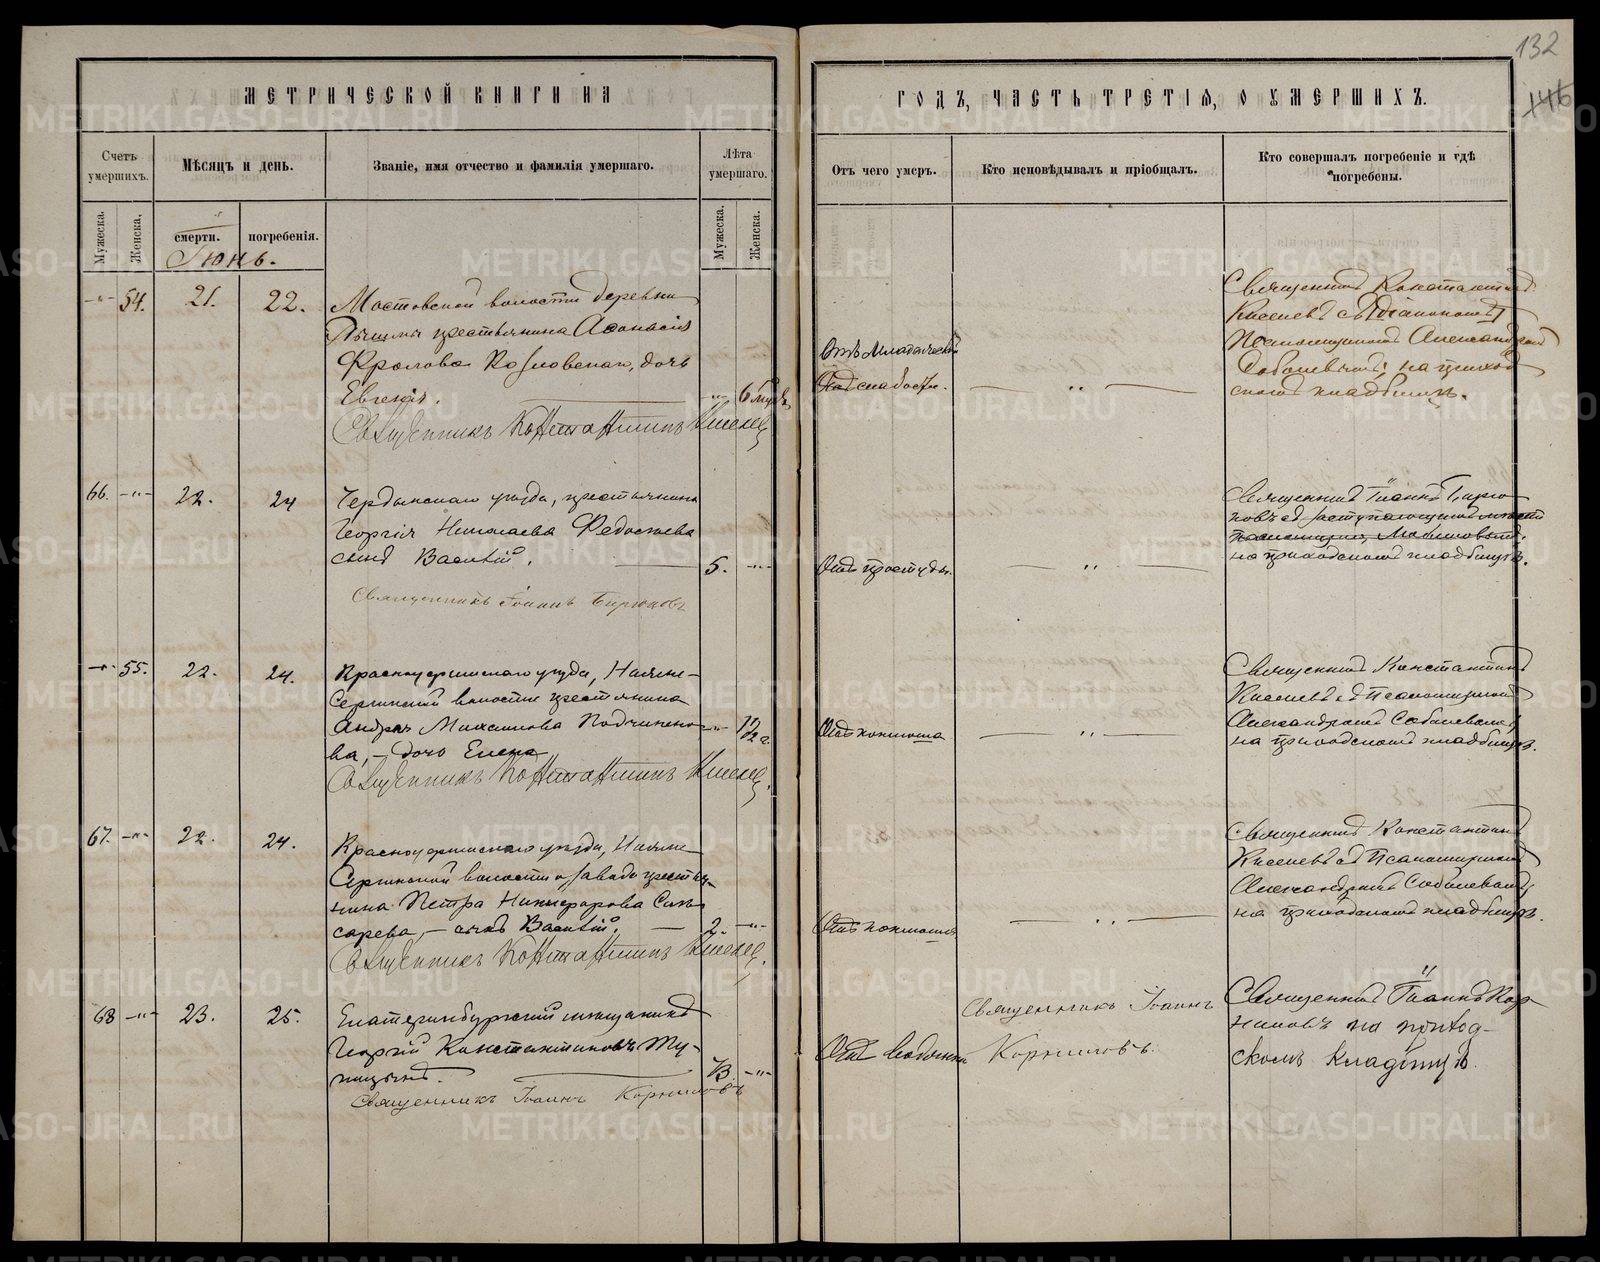 132
146
МЕТРИЧЕСКОЙ КНИГИ НА
ГОДЪ, ЧАСТЬ ТРЕТІЯ, О УМЕРШИХЪ.
Счетъ умершихъ.
Мѣсяцъ и день.
Званіе, имя отчество и фамилія умершаго.
Лѣта умершаго.
Мужеска.
Женска.
смерти.
погребенія.
Мужеска.
Женска.
Отъ чего умеръ.
Кто исповѣдывалъ и пріобщалъ.
Кто совершалъ погребеніе и гдѣ погребены.
Іюнь.
54. 21. 22.
Мостовской волости деревни
крестьянина Афонасія
Фролова Козловскаго, дочь
Евгенія.
6 мѣс.
Священникъ Константинъ Киселевъ
Отъ младенческой
слабости.
Священникъ Константинъ
Киселевъ съ Діакономъ
Псаломщикомъ Александромъ
Соболевымъ; на приход-
скомъ кладбищѣ.
66. 22. 24
Чердынскаго уѣзда, крестьянина
Георгія Николаева Федосѣева
сынъ Василій.
5.
Священникъ Іоаннъ Бирюковъ
Отъ простуды.
Священникъ Іоаннъ Бирю-
ковъ
на приходскомъ кладбищѣ.
55. 22. 24.
Красноуфимскаго уѣзда, Нижне-
Сергинской волости крестьянина
Андрея Михаилова Подчинено-
ва, – дочь Елена
1/2 г.
Священникъ Константинъ Киселевъ.
Отъ поноса
Священникъ Константинъ
Киселевъ съ Псаломщикомъ
Александромъ Соболевымъ,
на приходскомъ кладбищѣ.
67. 22. 24.
Красноуфимскаго уѣзда, Нижне
Сергинской волости и завода крестья-
нина Петра Никифорова Слѣ-
сарева, – сынъ Василій.
2.
Священникъ Константинъ Киселевъ.
Отъ поноса
Священникъ Константинъ
Киселевъ съ Псаломщикомъ
Александромъ Соболевымъ,
на приходскомъ кладбищѣ.
68 23. 25.
Екатеринбургскій мѣщанинъ
Георгій Константиновъ Ту-
пицынъ.
73.
Священникъ Іоаннъ Корниловъ
Отъ водянки
Священникъ Іоаннъ
Корниловъ.
Священникъ Іоаннъ Кор-
ниловъ на приход-
скомъ кладбищѣ.
METRIKI.GASO-URAL.RU